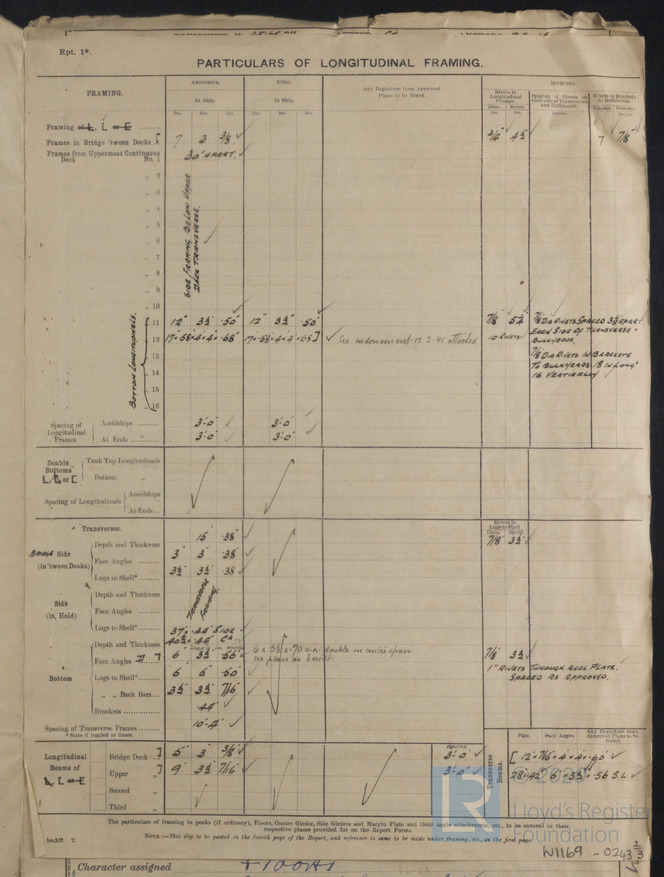 Rpt. 1*.
PARTICULARS OF LONGITUDINAL FRAMING.
FRAMING. AMIDSHIPS. ENDS. Any Departure from Approved Plans to be Noted. RIVETING.
In Ship. In Ship. Rivets in Longitudinal Frames. Spacing of Rivets on each side of Transverses and Bulkheads. Rivets in Brackets to Bulkheads.
Ins. Ins. Ins. Ins. Ins. Ins. Diam. Ins. Speed. Ins. Inches. Number. Diameter. Inches.
Framing of L, [ or E
Frames in Bridge 'tween Decks [ 7 3 3/8 3/4 4½ 7 7/8"
Frames from Uppermost Continuous Deck No. 1 30" APART.
" 2
" 3
" 4
" 5
" 6
" 7
" 8
" 9
" 10
SIDE FRAMING BELOW UPPER
DECK TRANSVERSE.
Bottom Longitudinals.
" 11 12" 3½ .50 12" 3½ .50 7/8 5¼ 7/8 DIA RIVETS SPACED 3⅞ APART
EACH SIDE OF TRANSVERSE &
BULKHEADS.
" 12 17 × .58 × 4 × 4 × .68 17 × .58 × 4 × 4 × .68] See endorsement 12.2.41 attached 10 RIVETS
" 13 7/8 DIA RIVETS IN BRACKETS
" 14 TO BULKHEADS 18 IN LONG'L
" 15 16 VERTICALLY
" 16
Spacing of Longitudinal Frames Amidships 3'-0" 3'-0"
At Ends 3'-0" 3'-0"
Double Bottoms L, E or [ Tank Top Longitudinals
Bottom "
Spacing of Longitudinals Amidships
At Ends
Transverses. Rivets in Lugs to Shell.
Diam. Speed.
Side (in 'tween Decks) Depth and Thickness 15 .38 7/8 3½
Face Angles 3 3 .38
Lugs to Shell* 3½ 3½ .38
Side (in Hold) Depth and Thickness
Face Angles
Lugs to Shell*
TRANSVERSE
FRAMING.
Bottom Depth and Thickness 37 × .44 SIDE
Face Angles 6 3½ .56 double in centre span
see plans as built 7/8 3½
Lugs to Shell* 6 6 .50 1" RIVETS THROUGH KEEL PLATE.
SPACED AS APPROVED.
" " Back Bars 3½ 3½ 7/16
Brackets .44
Spacing of Transverse Frames 10'-4"
* State if joggled or liners.
Longitudinal Beams of L, [ or E Bridge Deck ] 5" 3" 3/8 Spacing. 3'-0"
Upper " ] 9" 3½ 7/16 3'-0"
Second "
Third "
Transverse Beams. Plate. Face Angles. Any Departure from Approved Plans to be Noted.
[ 12 × 7/16 × 4 × 4 × .60
28 × .42 6 × 3½ × .56 S.L.
The particulars of framing in peaks (if ordinary), Floors, Centre Girder, Side Girders and Margin Plate and their angle attachments, etc., to be entered in their
respective places provided for on the Report Forms.
NOTE.—This slip to be pasted in the fourth page of the Report, and reference to same to be made under framing, etc., on the first page.
© 2020
Lloyd's Register
Foundation
W1169 - 0243 2/3
Character assigned +100A1